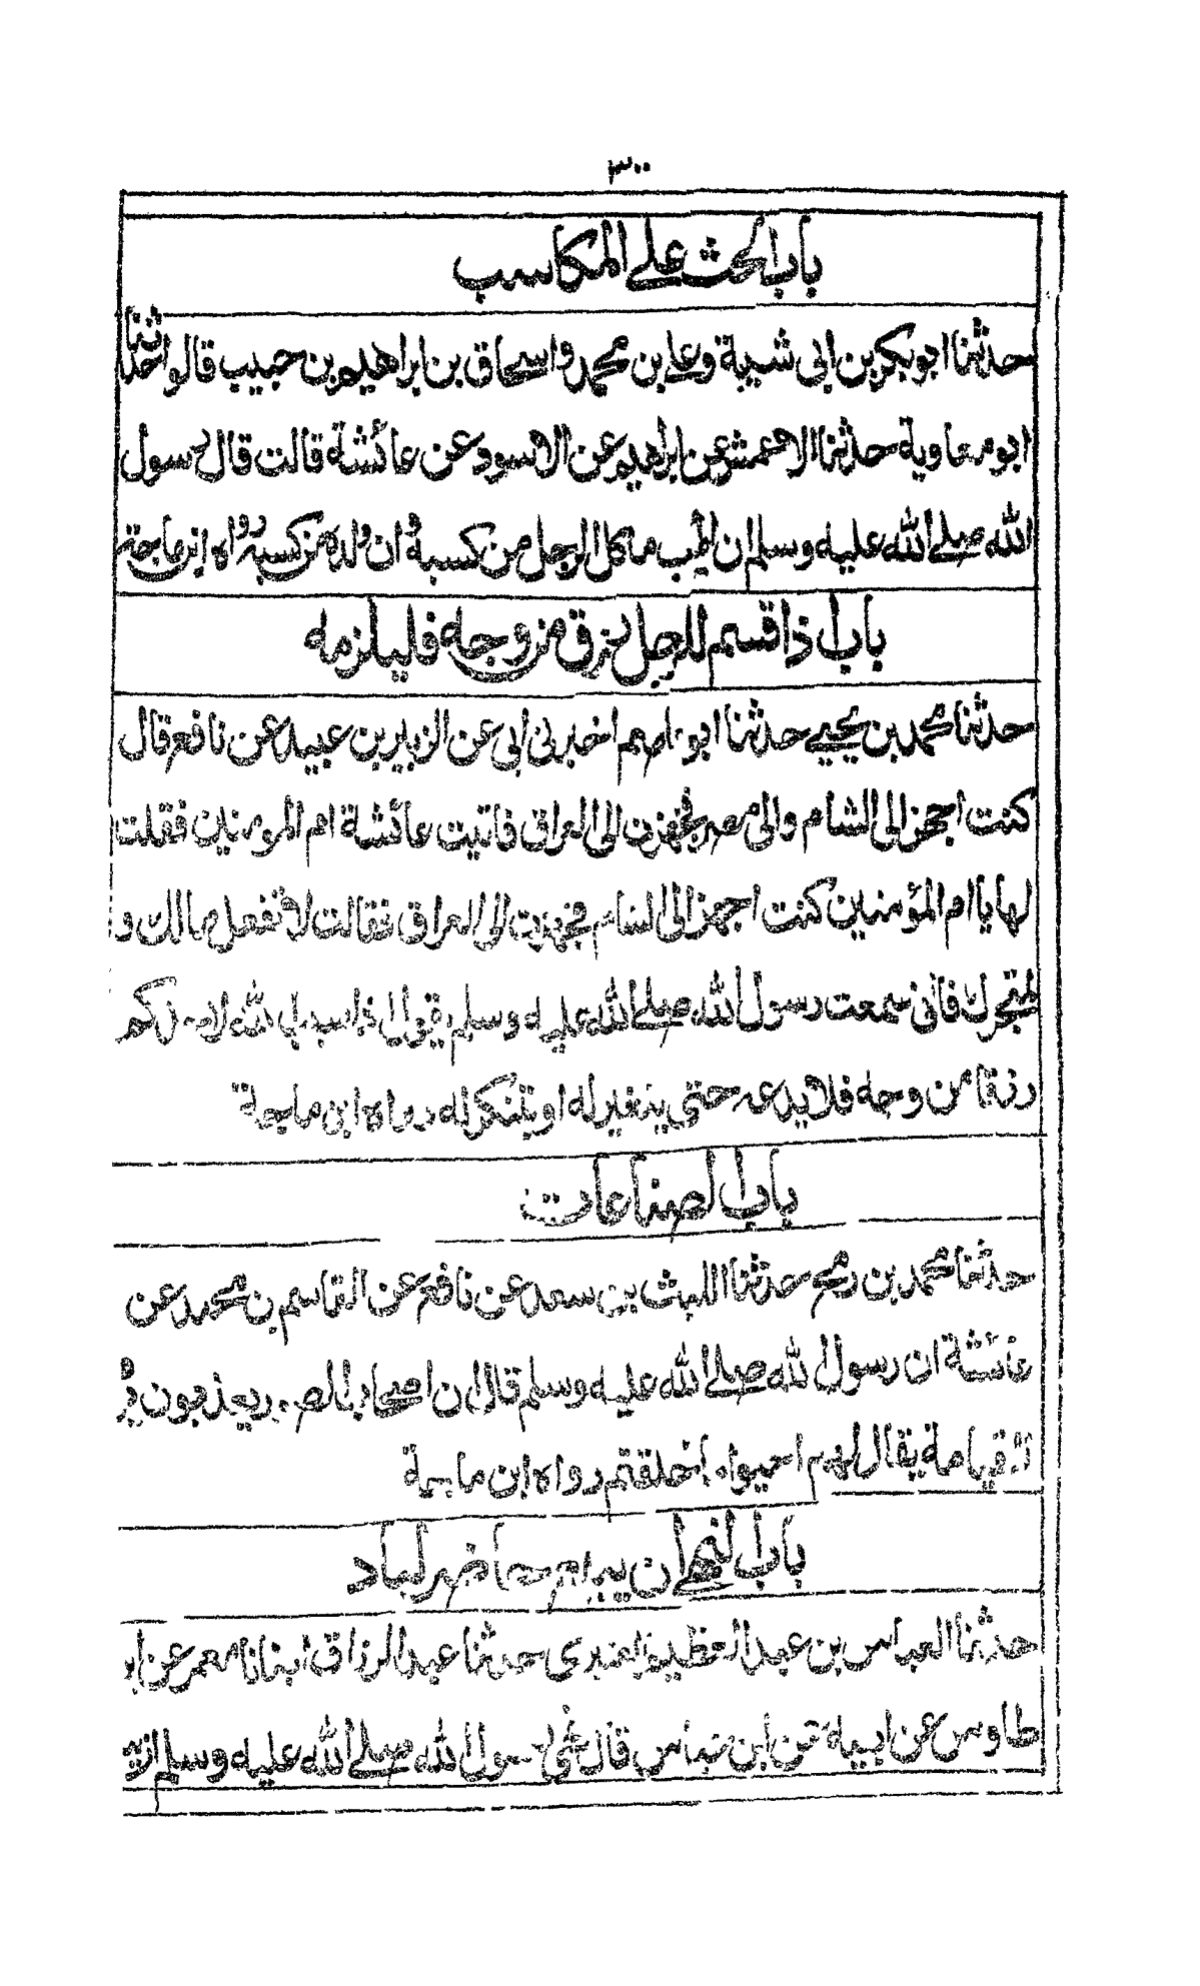 ٣٠٠
باب الحث على المكاسب
حدثنا ابوبكر بن ابى شيبة وعلى بن محمد واسحاق بن ابراهيم بن حبيب قالوا حدثنا
ابو معاوية حدثنا الاعمش عن ابراهيم عن الاسود عن عائشة قالت قال رسول
الله صلى الله عليه وسلم ان اطيب ما اكل الرجل من كسبه وان ولده من كسبه رواه ابن ماجة
باب اذا قسم للرجل رزق من وجه فليلزمه
حدثنا محمد بن يحيى حدثنا ابو عاصم اخبرنى ابى عن الزبير بن عبيد عن نافع قال
كنت اجهز الى الشام والى مصر فجهزت الى العراق فاتيت عائشة ام المومنين فقلت
لها يا ام المؤمنين كنت اجهز الى الشام فجهزت الى العراق فقالت لا تفعل مالك و
لمتجرك فانى سمعت رسول الله صلى الله عليه وسلم يقول اذا سبب الله لاحدكم
رزقا من وجه فلا يدعه حتى يتغير له او يتنكر له رواه ابن ماجة
باب الصناعات
حدثنا محمد بن رمح حدثنا الليث بن سعد عن نافع عن القاسم بن محمد عن
عائشة ان رسول الله صلى الله عليه وسلم قال ان اصحاب الصور يعذبون يوم
القيامة يقال لهم احيوا ما خلقتم رواه ابن ماجة
باب النهى ان يبيع حاضر لباد
حدثنا العباس بن عبد العظيم العنبرى حدثنا عبد الرزاق انبانا معمر عن ابن
طاوس عن ابيه عن ابن عباس قال نهى رسول الله صلى الله عليه وسلم ان